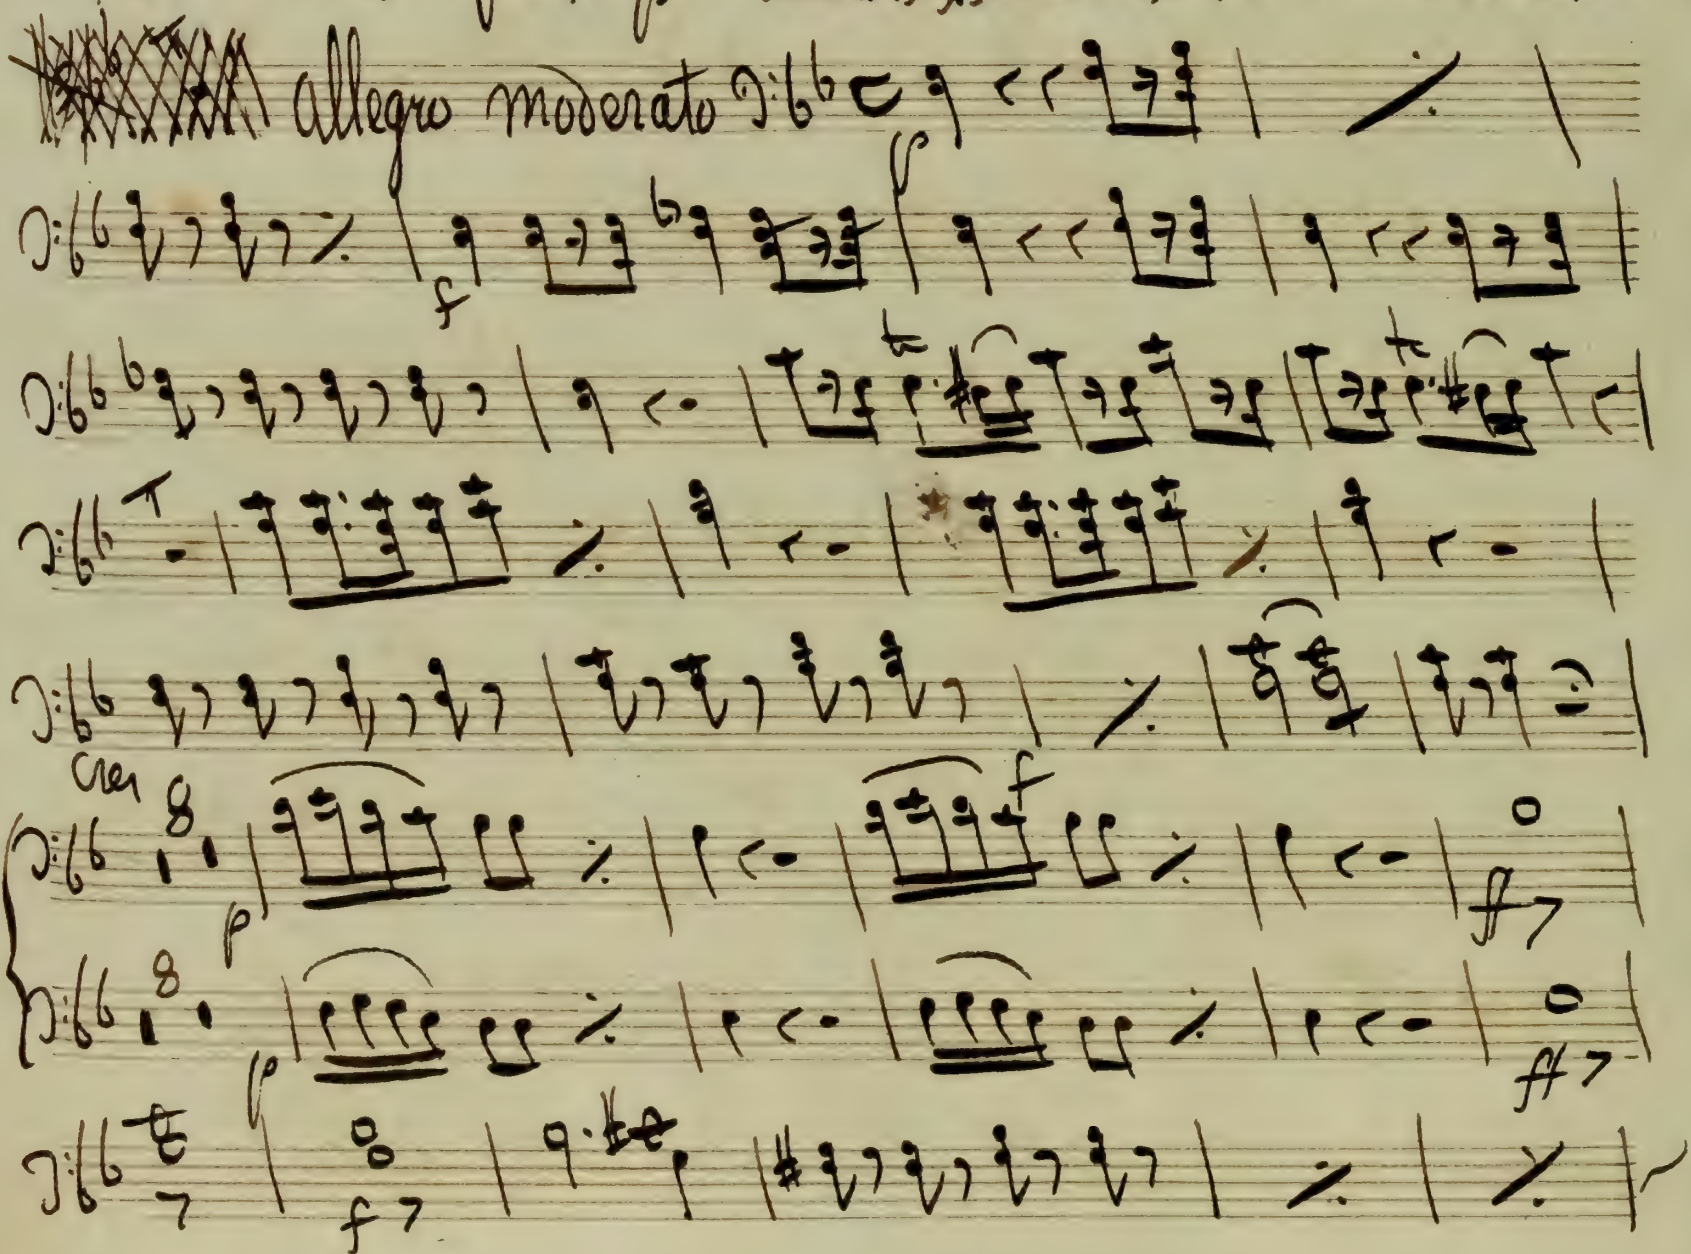 allegro moderato
p
f
tr tr
cres
8 f
p ff
8
p ff
f